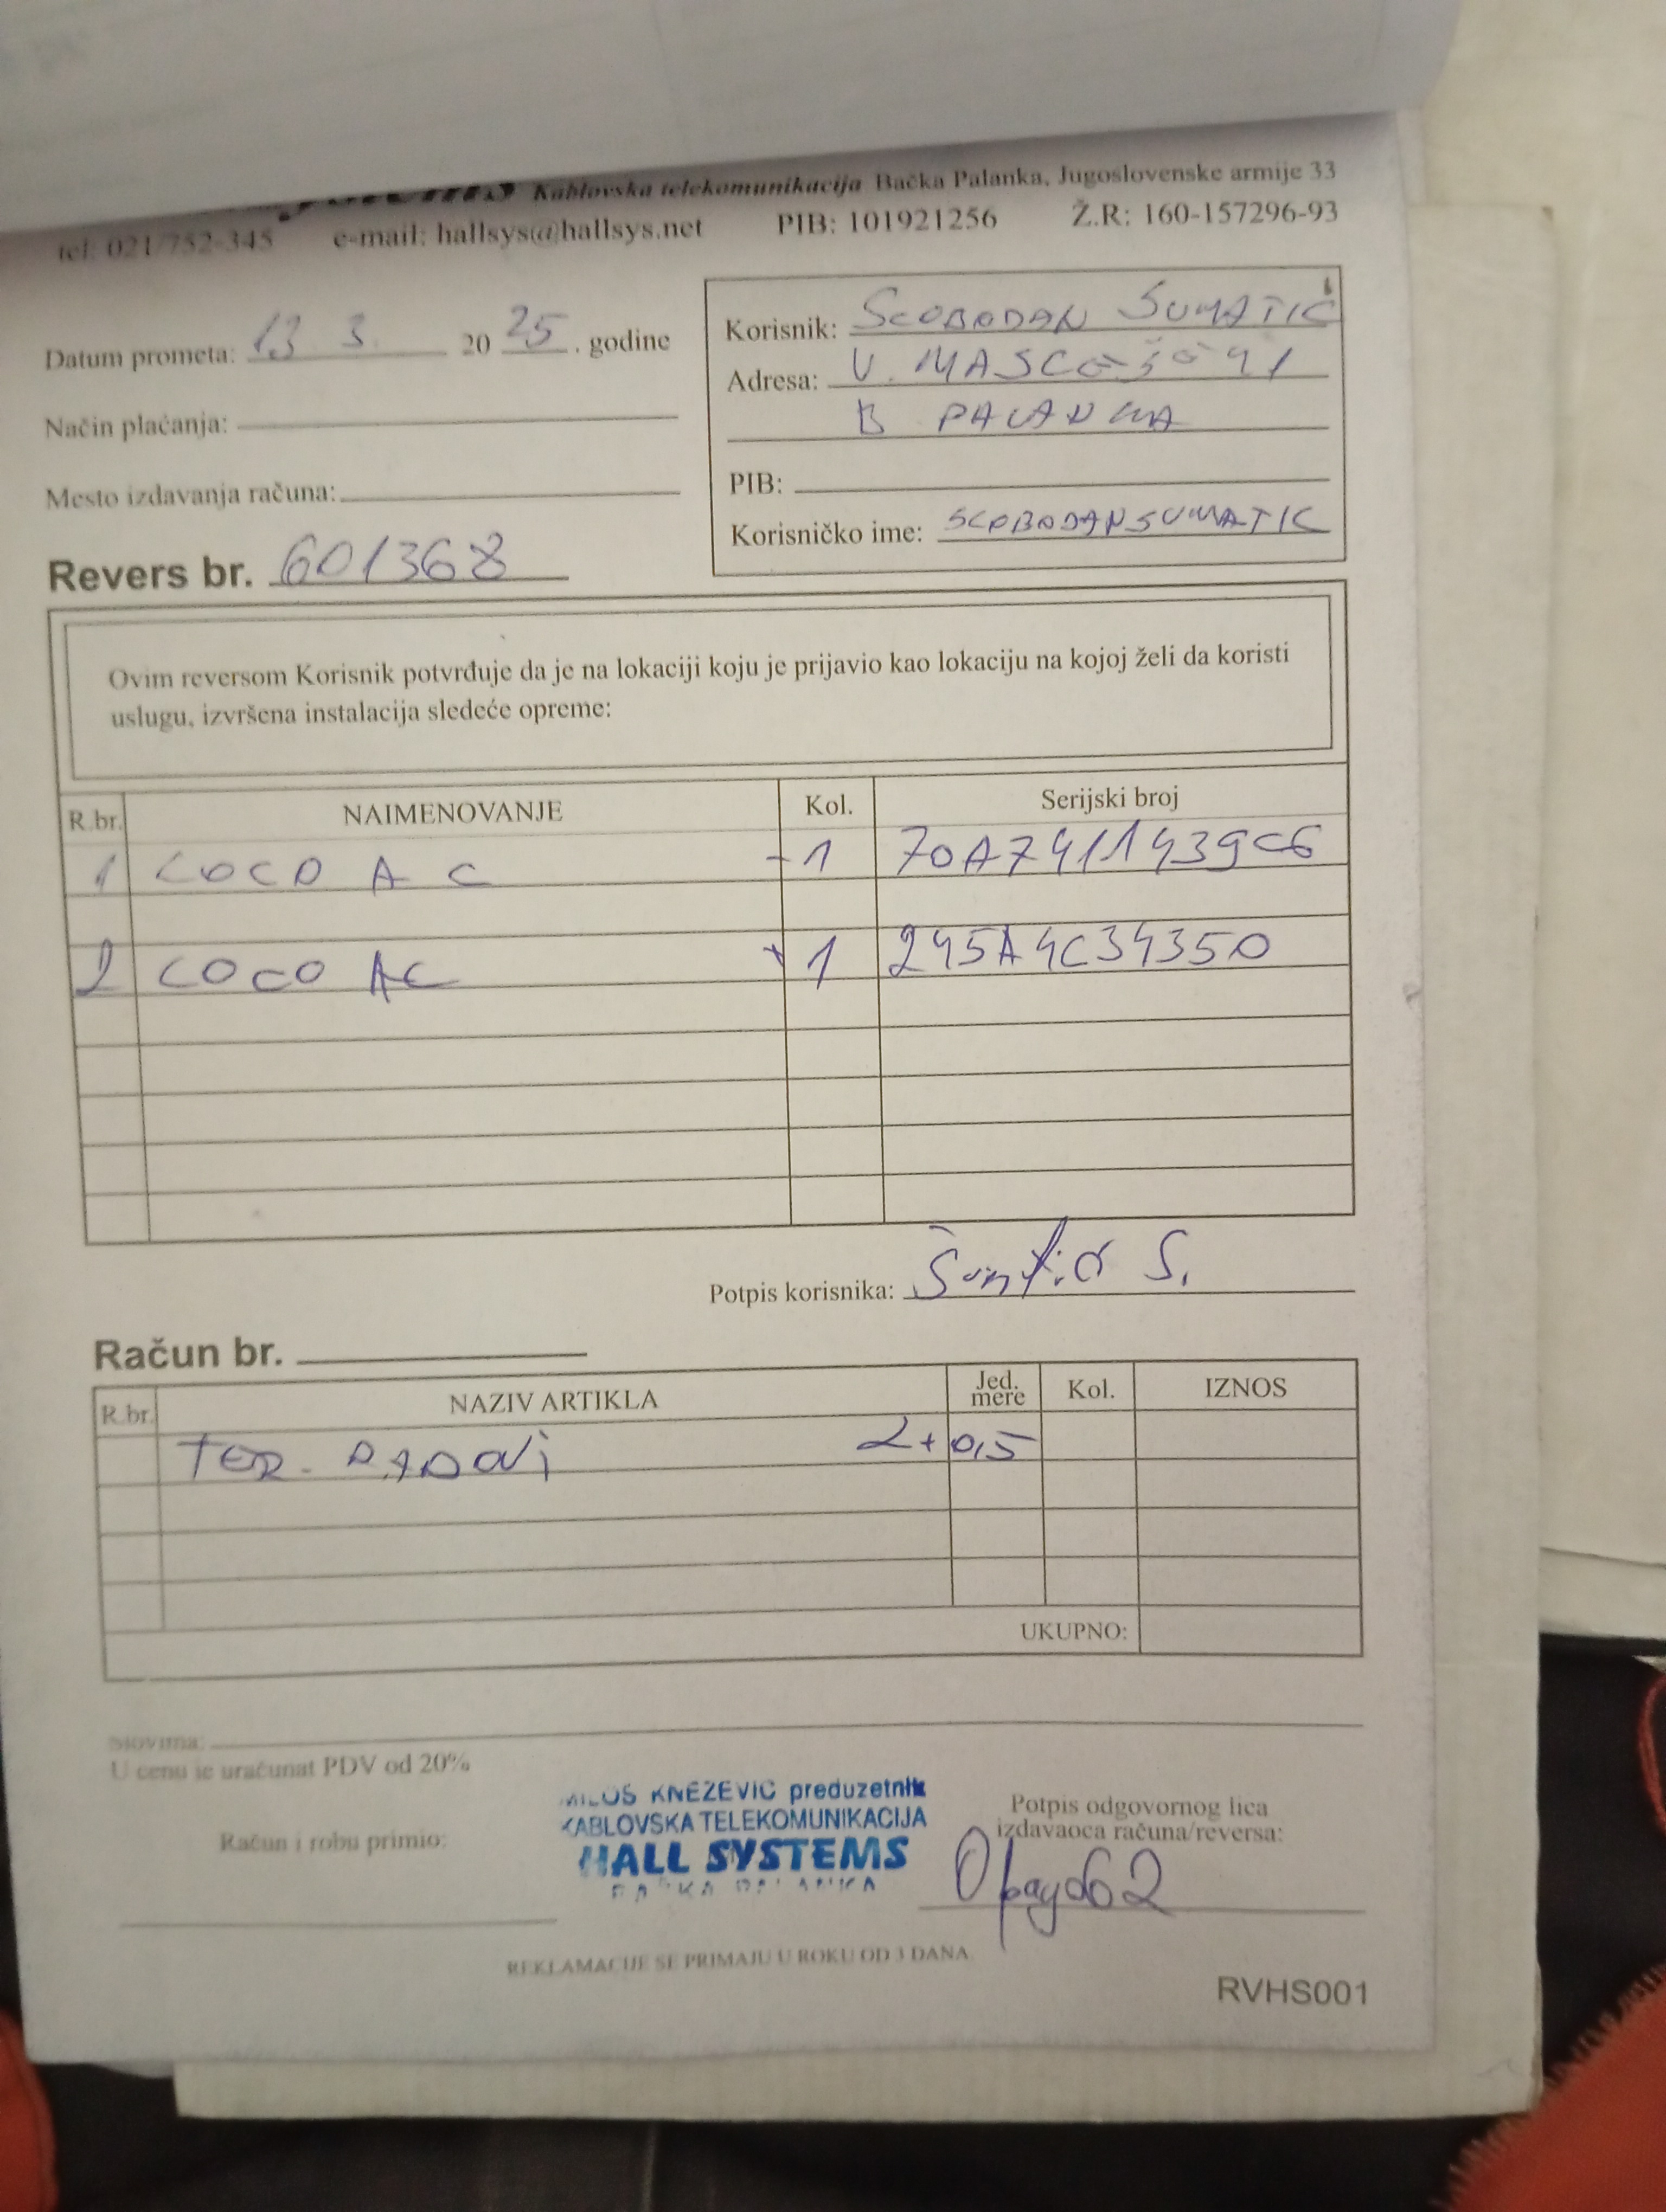 Kablovska telekomunikacija Bačka Palanka, Jugoslovenske armije 33
tel: 021/752-345 e-mail: hallsys@hallsys.net PIB: 101921256 Ž.R: 160-157296-93
Datum prometa: 13 3. 20 25. godine
Način plaćanja:
Mesto izdavanja računa:
Revers br. 601368
Korisnik: SLOBODAN SUMATIC
Adresa: V. MASLEŠE 41
B PALANKA
PIB:
Korisničko ime: SLOBODANSUMATIC
Ovim reversom Korisnik potvrđuje da je na lokaciji koju je prijavio kao lokaciju na kojoj želi da koristi
uslugu, izvršena instalacija sledeće opreme:
R.br. NAIMENOVANJE Kol. Serijski broj
1 LOCO AC -1 70A7411439C6
2 LOCO AC +1 245A4C34350
Potpis korisnika: S.
Račun br.
R.br. NAZIV ARTIKLA Jed. mere Kol. IZNOS
TER. RADOVI 2+0,5
UKUPNO:
Slovima:
U cenu je uračunat PDV od 20%
Račun i robu primio:
MILOŠ KNEŽEVIĆ preduzetnik
KABLOVSKA TELEKOMUNIKACIJA
HALL SYSTEMS
BAČKA PALANKA
Potpis odgovornog lica
izdavaoca računa/reversa:
REKLAMACIJE SE PRIMAJU U ROKU OD 3 DANA.
RVHS001